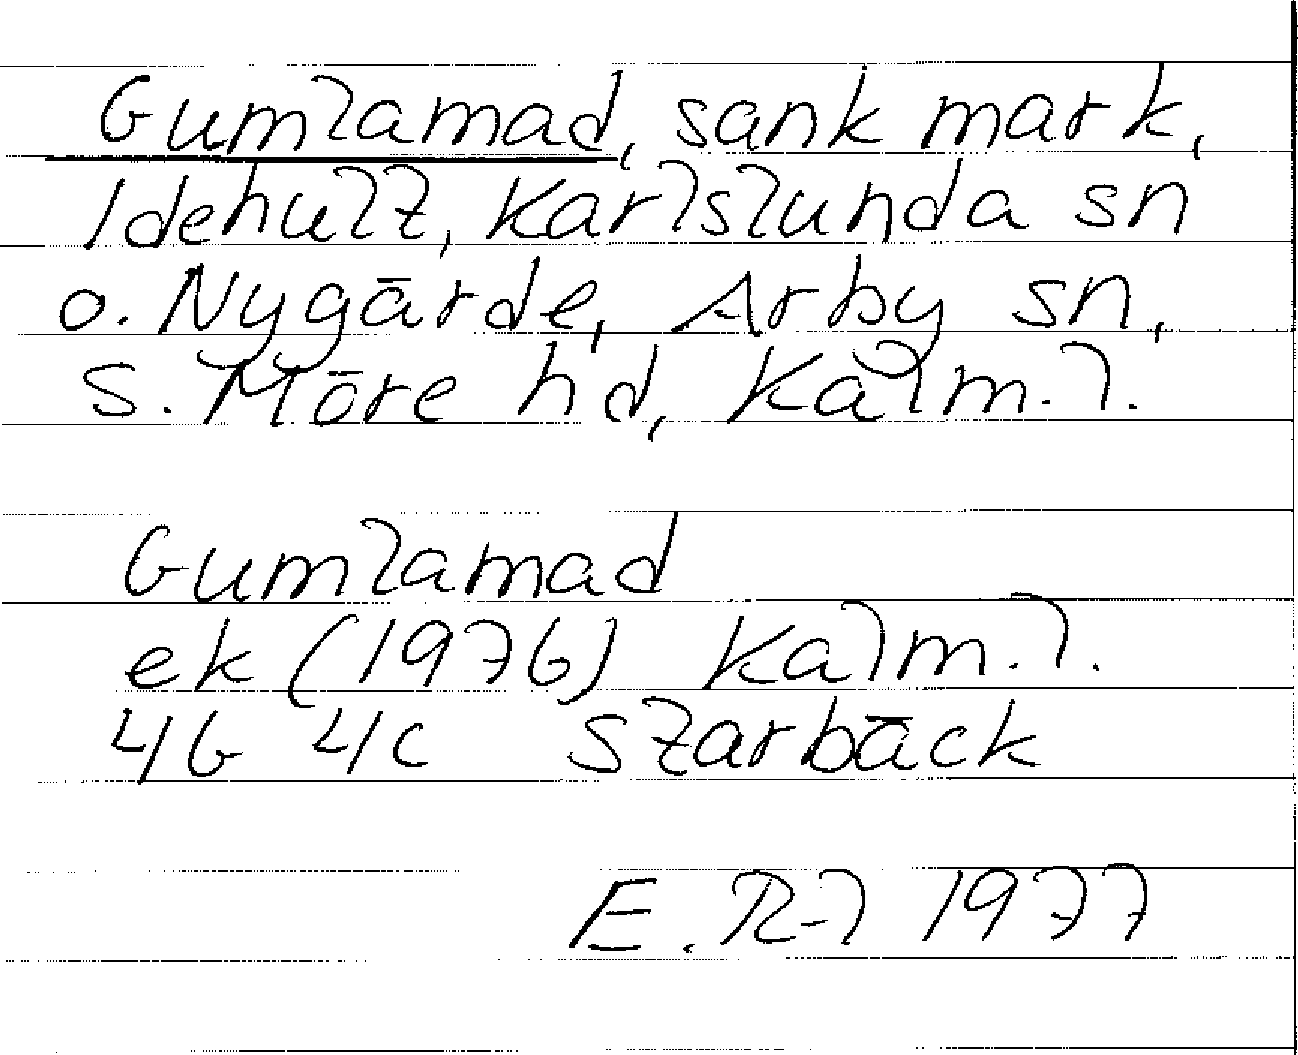 Gumlamad, sank mark,
Idehult, Karlslunda sn
o. Nygärde, Arby sn,
S. Möre hd, Kalm. l.
Gumlamad
ek (1976) Kalm. l.
4G 4c Starbäck
E. R-l 1977